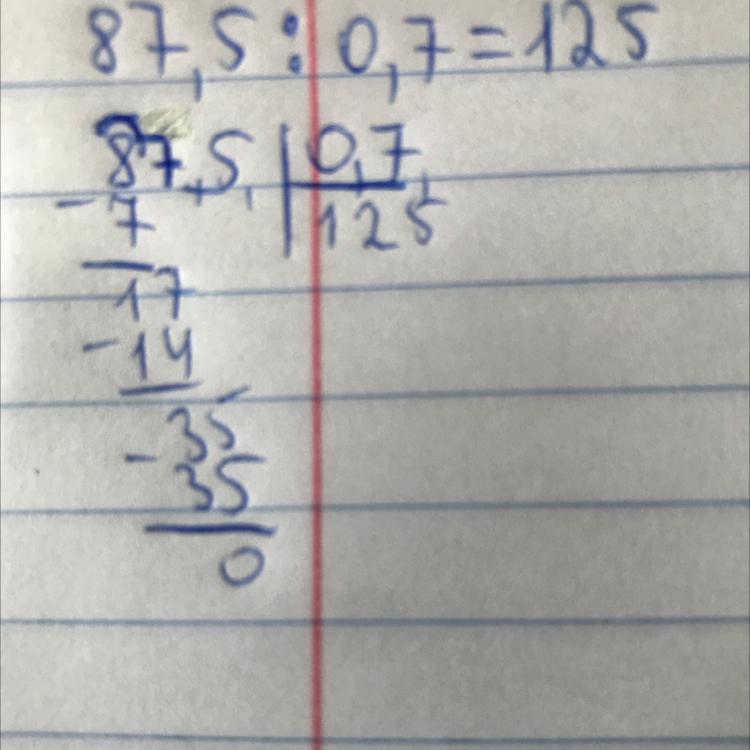 87,5 : 0,7 = 125
87,5, | 0,7,
- 7 | 125
17
- 14
- 35
35
0